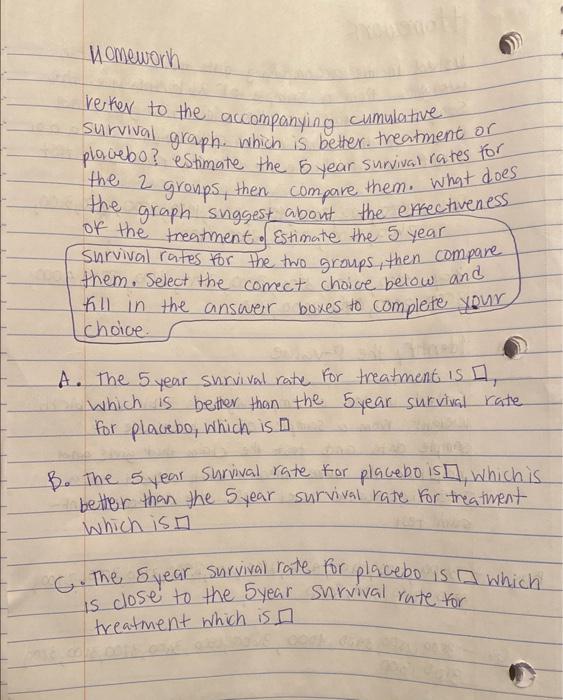 Homework
refer to the accompanying cumulative
survival graph. which is better. treatment or
placebo? estimate the 5 year survival rates for
the 2 groups, then compare them. what does
the graph suggest about the effectiveness
of the treatment. Estimate the 5 year
survival rates for the two groups, then compare
them. Select the correct choice below and
fill in the answer boxes to complete your
choice.
A. The 5 year survival rate for treatment is □,
which is better than the 5 year survival rate
for placebo, which is □
B. The 5 year survival rate for placebo is □, which is
better than the 5 year survival rate for treatment
which is □
C. The 5 year survival rate for placebo is □ which
is close to the 5 year survival rate for
treatment which is □